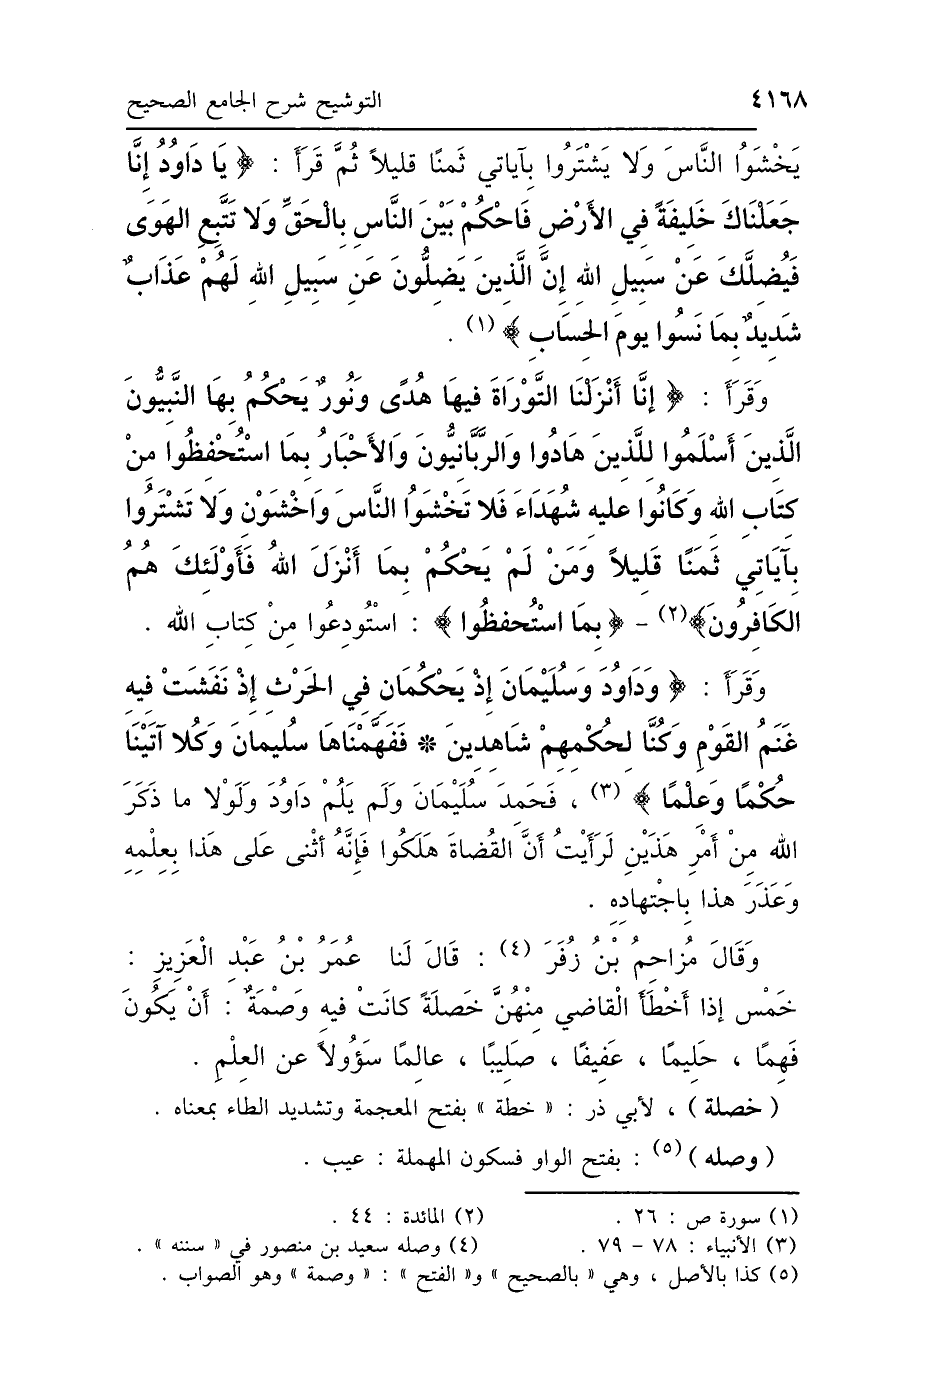 ٤١٦٨ التوشيح شرح الجامع الصحيح
يَخْشَوُا النَّاسَ وَلَا يَشْتَرُوا بِآياتي ثَمنًا قليلاً ثُمَّ قَرَأَ : ﴿ يَا دَاوُدُ إِنَّا
جَعَلْنَاكَ خَلِيفَةً فِي الأَرْضِ فَاحْكُمْ بَيْنَ النَّاسِ بِالْحَقِّ وَلا تَتَّبِعِ الهَوَى
فَيُضلَّكَ عَنْ سَبِيلِ الله إِنَّ الَّذِينَ يَضِلُّونَ عَنِ سَبِيلِ الله لَهُمْ عَذَابٌ
شَدِيدٌ بِمَا نَسُوا يومَ الحِسَابِ ﴾ (١) .
وَقَرَأَ : ﴿ إِنَّا أَنْزَلْنَا التَّوْرَاةَ فِيهَا هُدًى وَنُورٌ يَحْكُمُ بِهَا النَّبِيُّونَ
الَّذِينَ أَسْلَمُوا لِلَّذِينَ هَادُوا وَالرَّبَّانِيُّونَ وَالأَحْبَارُ بِمَا اسْتُحْفِظُوا مِنْ
كِتَابِ الله وَكَانُوا عليهِ شُهَدَاءَ فَلا تَخْشَوُا النَّاسَ وَاخْشَوْنِ وَلا تَشْتَرُوا
بِآيَاتِي ثَمَنًا قَلِيلاً وَمَنْ لَمْ يَحْكُمْ بِمَا أَنْزَلَ اللهُ فَأُولَئِكَ هُمُ
الكَافِرُونَ﴾(٢) - ﴿ بِمَا اسْتُحفِظُوا ﴾ : اسْتُودِعُوا مِنْ كتابِ الله .
وَقَرَأَ : ﴿ وَدَاوُدَ وَسُلَيْمَانَ إِذْ يَحْكُمَانِ فِي الحَرْثِ إِذْ نَفَشَتْ فِيهِ
غَنَمُ القَوْمِ وَكُنَّا لِحُكْمِهِمْ شَاهِدِينَ * فَفَهَّمْنَاهَا سُليمانَ وَكُلا آتَيْنَا
حُكْمًا وَعِلْمًا ﴾ (٣) ، فَحَمِدَ سُلَيْمَانَ وَلَم يَلُمْ دَاوُدَ وَلَوْلا ما ذَكَرَ
الله مِنْ أَمْرِ هَذَيْنِ لَرَأَيْتُ أَنَّ القُضاةَ هَلَكُوا فَإِنَّهُ أثْنى عَلى هَذا بِعِلْمِهِ
وَعَذَرَ هذا بِاجْتِهادِهِ .
وَقَالَ مُزَاحِمُ بْنُ زُفَرَ (٤) : قَالَ لَنا عُمَرُ بْنُ عَبْدِ الْعَزِيزِ :
خَمْسٍ إذا أَخْطَأَ الْقاضِي مِنْهُنَّ خَصلَةً كانَتْ فيهِ وَصْمَةٌ : أَنْ يَكُونَ
فَهِمًا ، حَلِيمًا ، عَفِيفًا ، صَلِيبًا ، عالِمًا سَؤُولاً عن العِلْمِ .
( خصلة ) ، لأبي ذر : « خطة » بفتح المعجمة وتشديد الطاء بمعناه .
( وصله )(٥) : بفتح الواو فسكون المهملة : عيب .
(١) سورة ص : ٢٦ . (٢) المائدة : ٤٤ .
(٣) الأنبياء : ٧٨ – ٧٩ . (٤) وصله سعيد بن منصور في « سننه » .
(٥) كذا بالأصل ، وهي « بالصحيح » و« الفتح » : « وصمة » وهو الصواب .